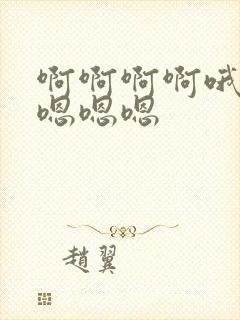 啊啊啊啊哦
嗯嗯嗯
趙翼